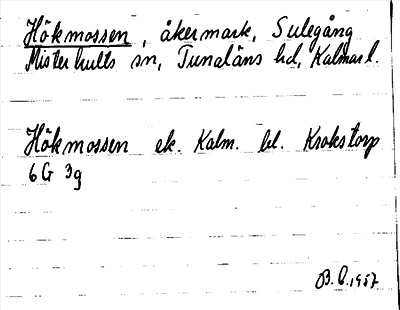 Hökmossen, åkermark, Sulegång
Misterhults sn, Tunaläns hd, Kalmar l.
Hökmossen ek. Kalm. bl. Krokstorp
6 G 3g
B.O. 1957